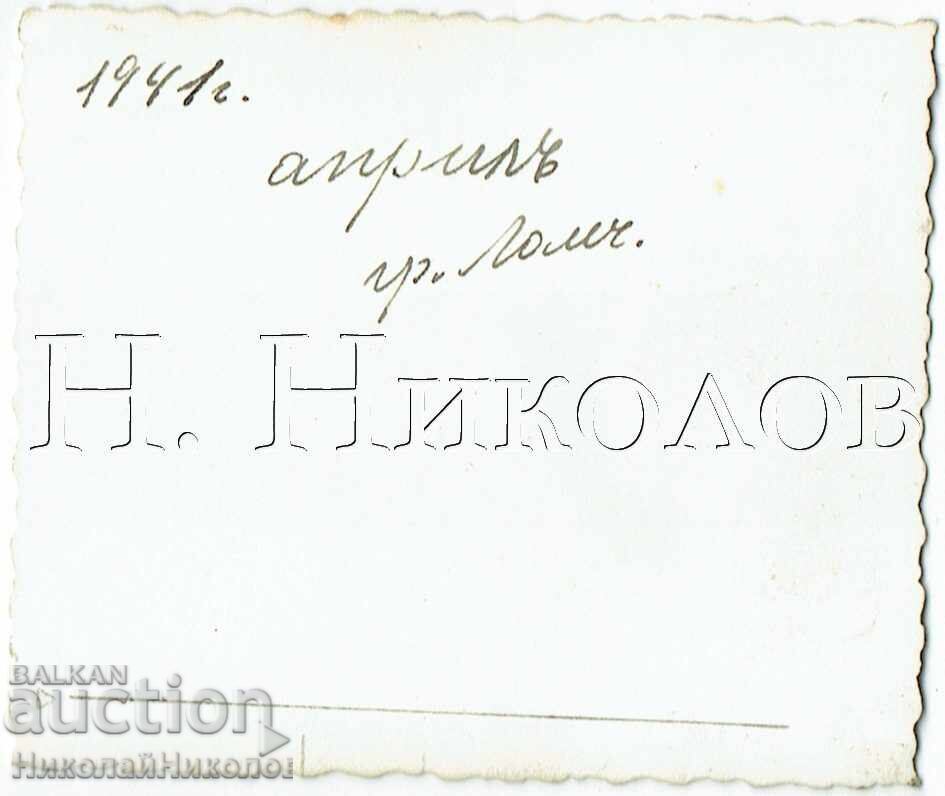 1941г.
априлъ
гр. Ломъ.
Н. Николов
BALKAN
auction
НиколайНиколов